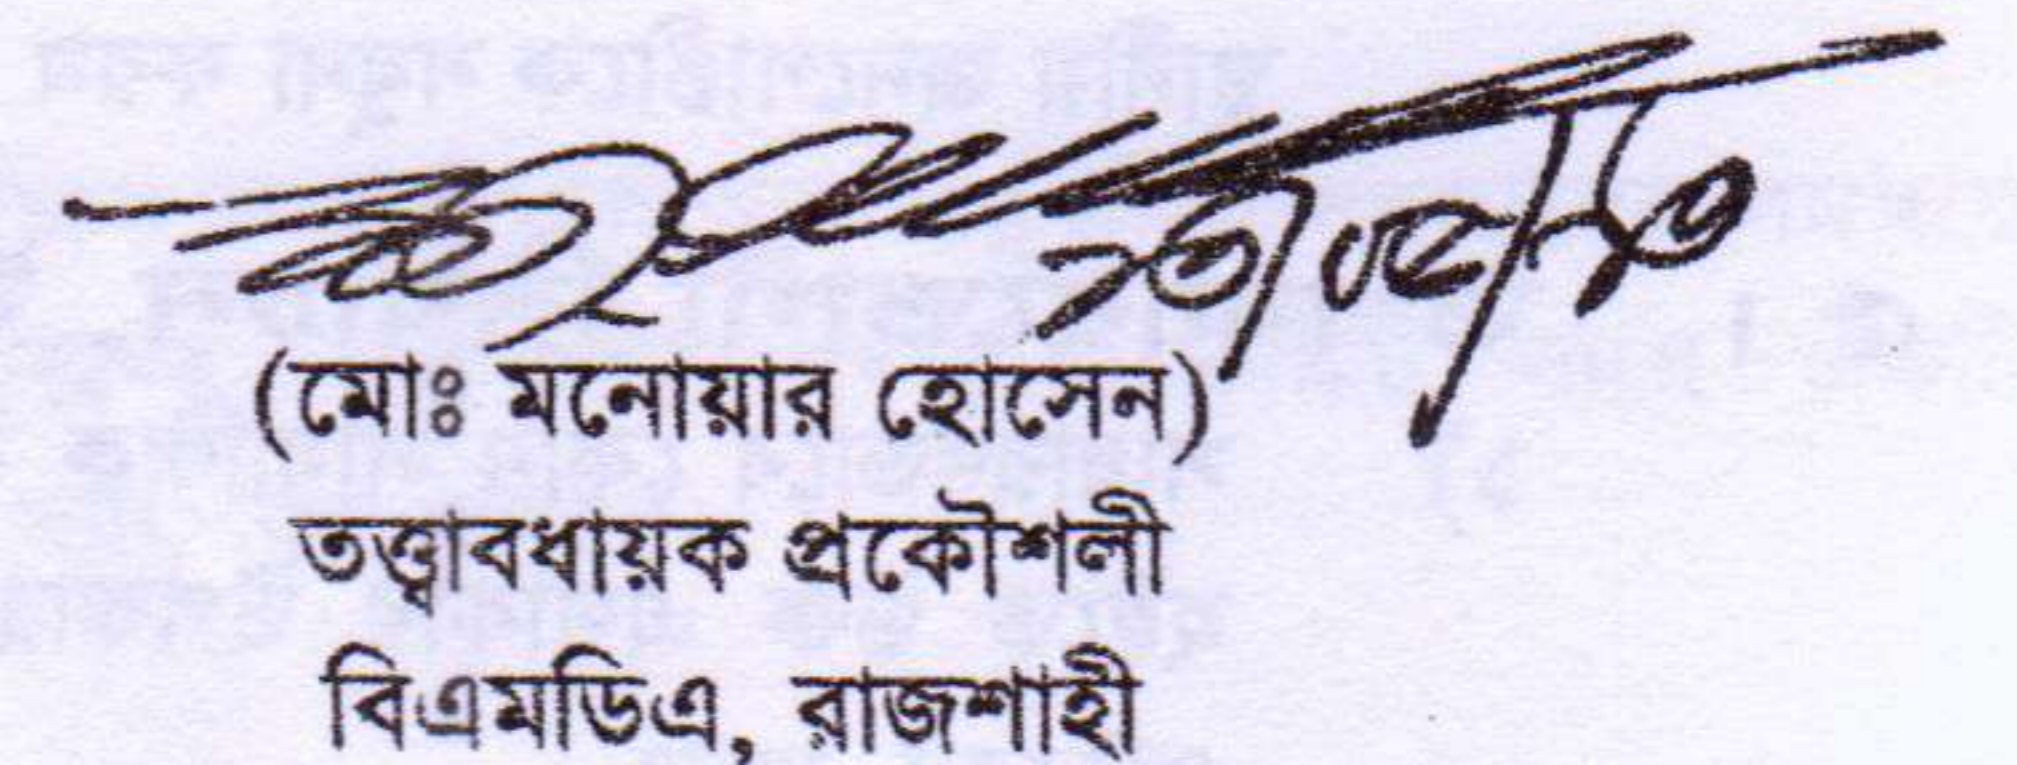 (মোঃ মনোয়ার হোসেন)
তত্ত্বাবধায়ক প্রকৌশলী
বিএমডিএ, রাজশাহী